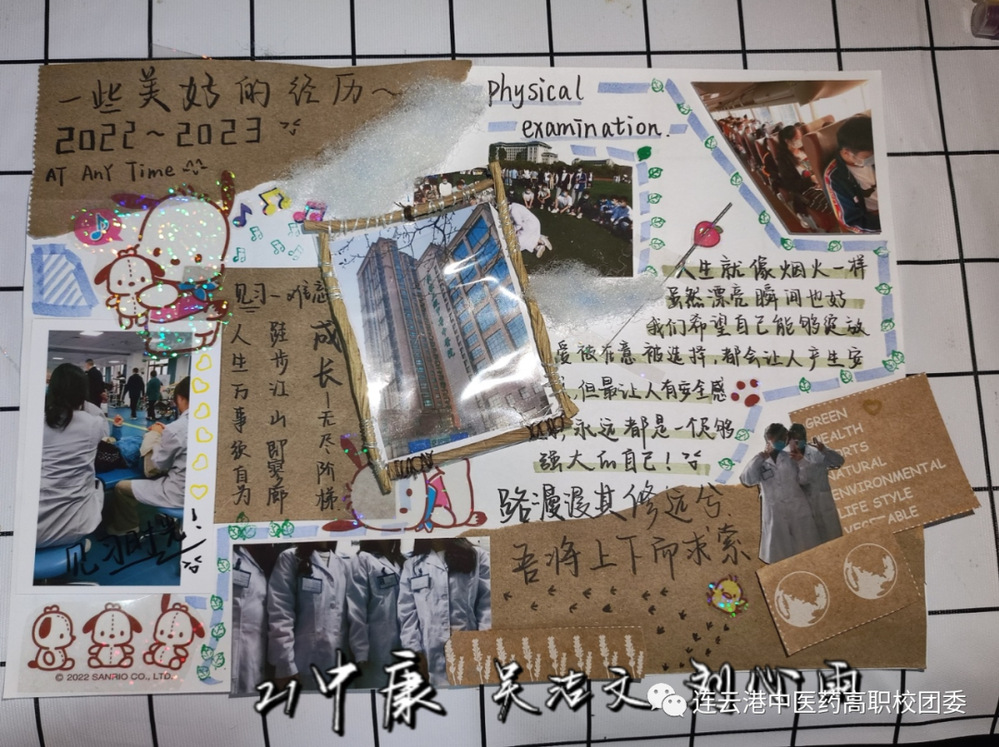 一些美好的经历～
2022～2023
AT AnY Time
physical
examination.
人生就像烟火一样
虽然漂亮瞬间也好
我们希望自己能够绽放
爱被在意被选择,都会让人产生安
但最让人有安全感
永远都是一个足够
强大的自己!
见习一
成长—无尽阶梯
跬步江山即寥廓
人生万事须自为
见习时光!
路漫漫其修远兮
吾将上下而求索
GREEN
HEALTH
NATURAL
ENVIRONMENTAL
LIFE STYLE
© 2022 SANRIO CO., LTD.
21中康 吴洁文 刘心雨
连云港中医药高职校团委